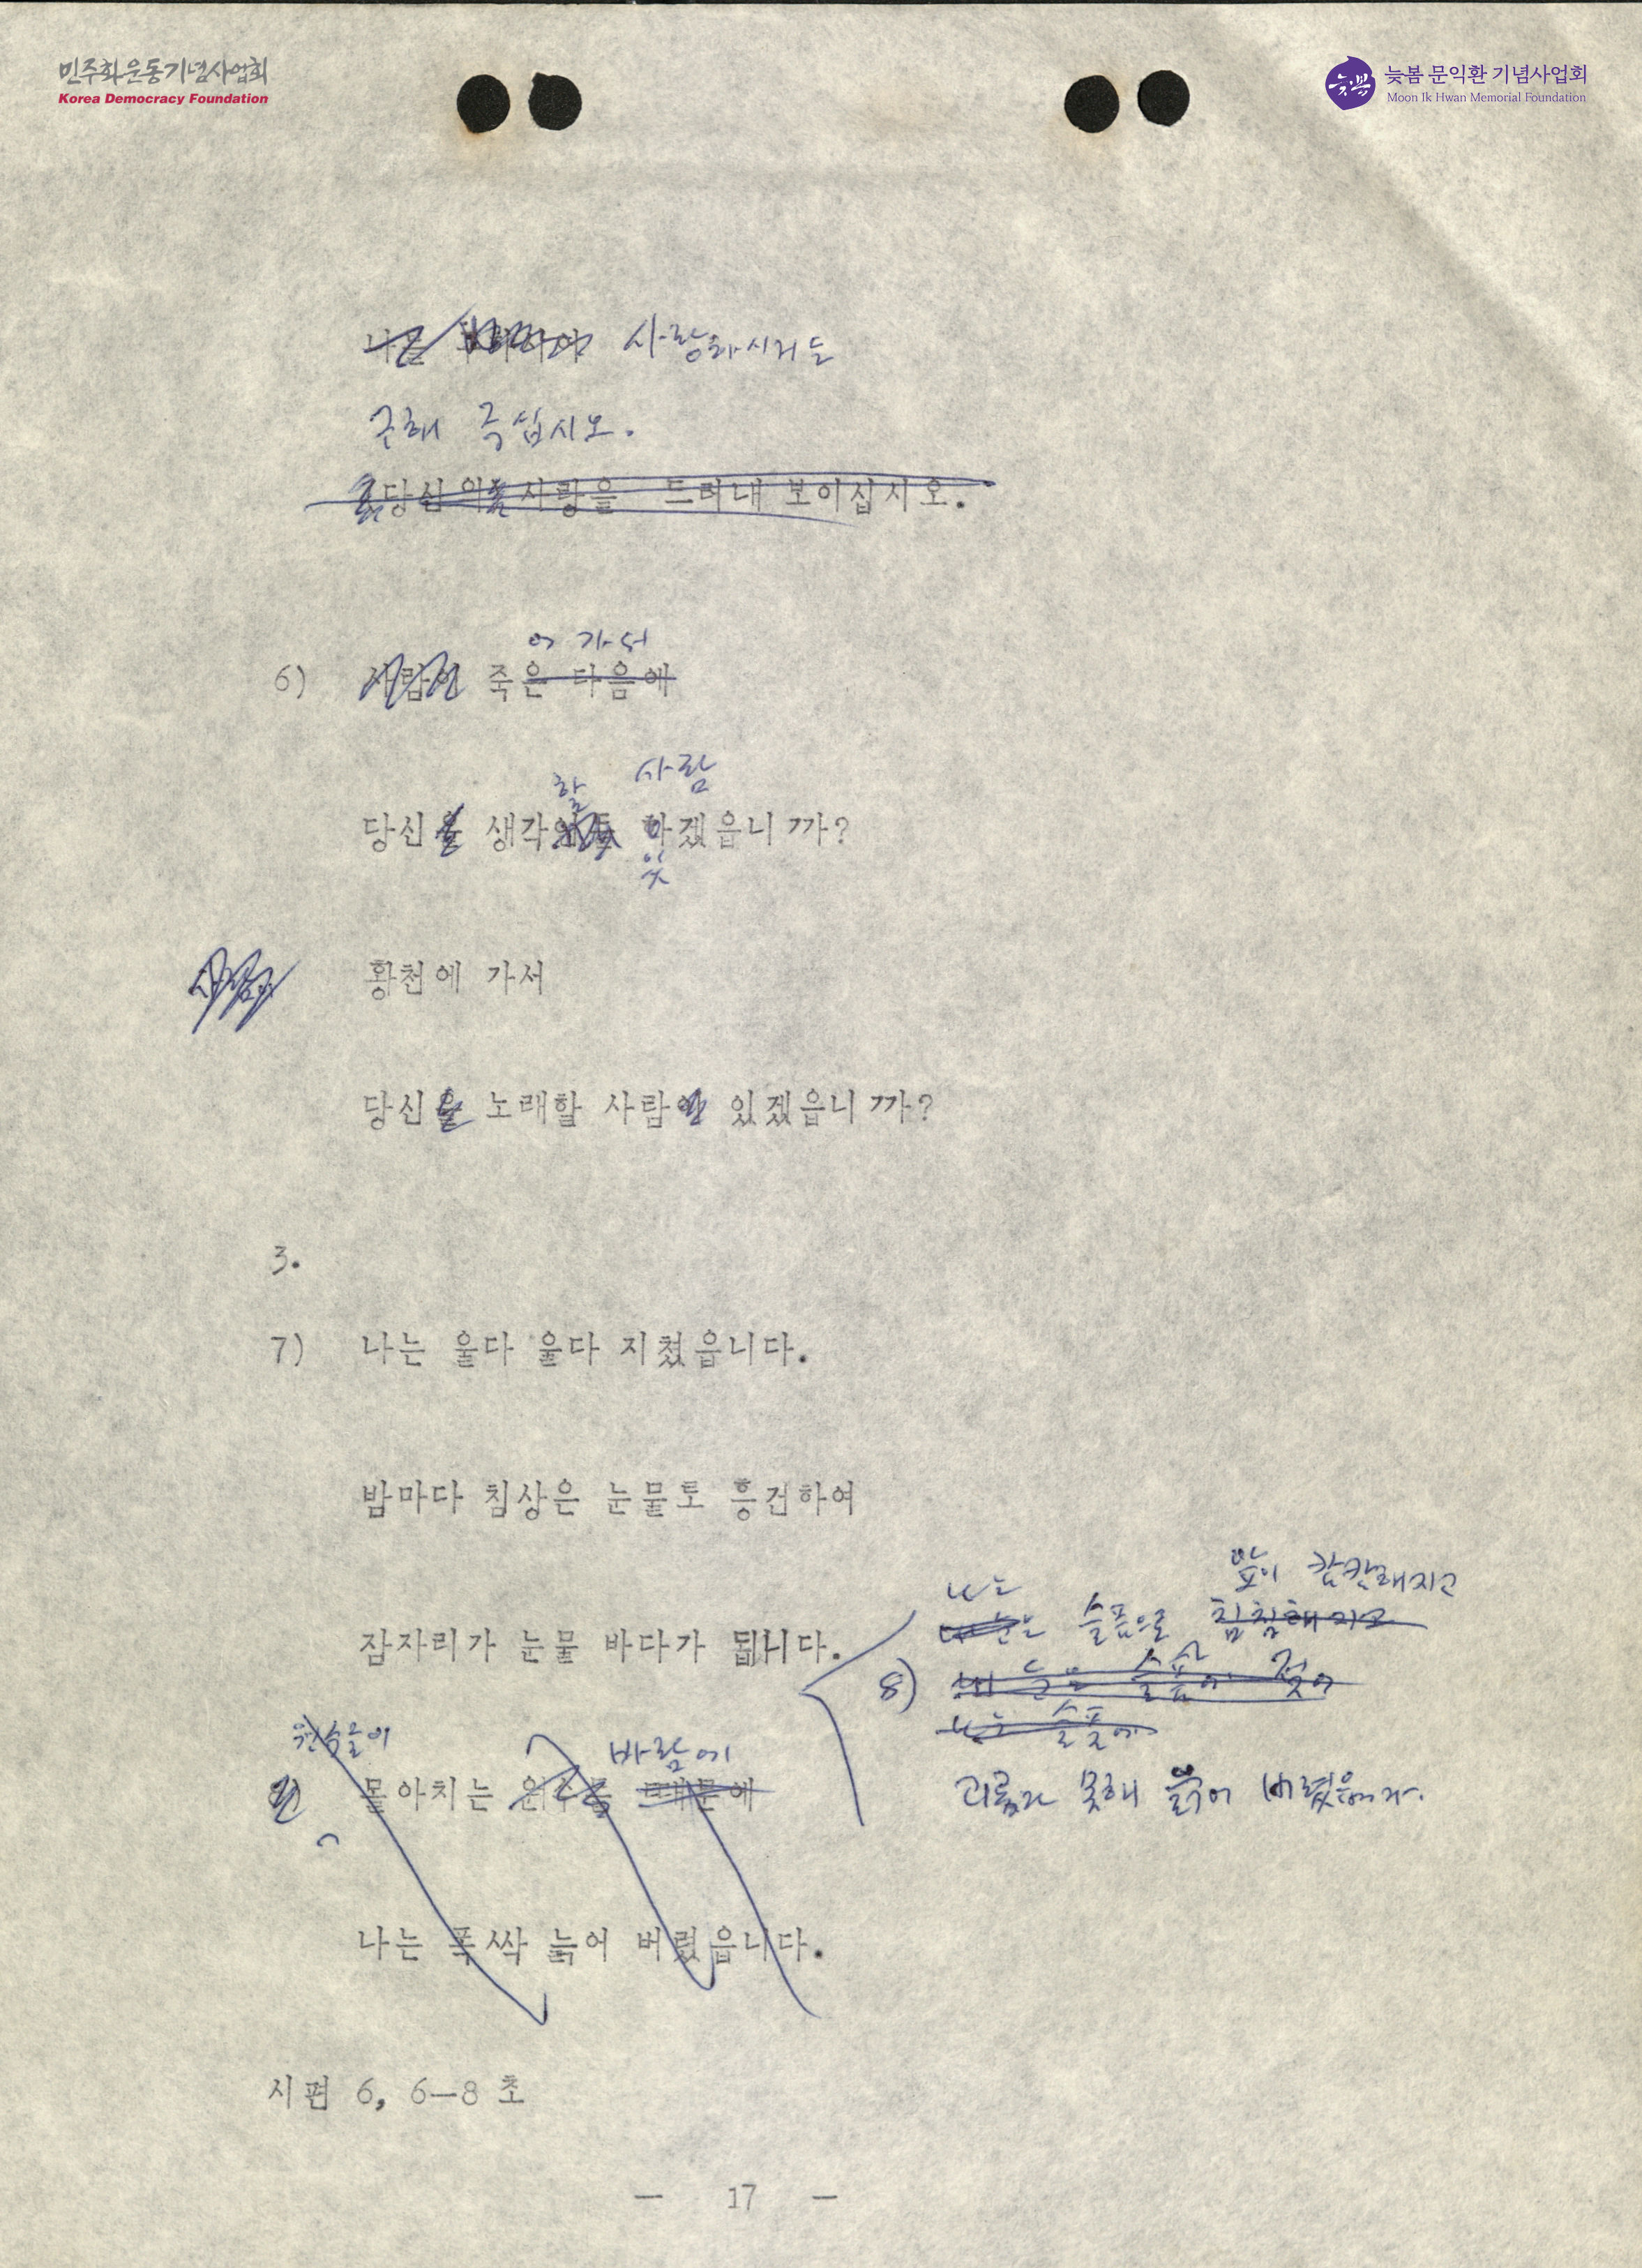 민주화운동기념사업회
Korea Democracy Foundation
늦봄 문익환 기념사업회
Moon Ik Hwan Memorial Foundation
사랑하시거든
구해 주십시오.
당신의 사랑을 드러내 보이십시오.
어 가서
6) 사람이 죽은 다음에
할 사람
당신을 생각 하겠읍니까?
있
황천에 가서
당신을 노래할 사람이 있겠읍니까?
3.
7) 나는 울다 울다 지쳤읍니다.
밤마다 침상은 눈물로 흥건하여
잠자리가 눈물 바다가 됩니다.
앞이 캄캄해지고
나는
슬픔으로 침침해지고
8) 내 눈은 슬픔에 젖어
나는 슬픔에
괴롭다 못해 늙어 버렸읍니다.
원수들이
바람에
몰아치는 원수들 때문에
나는 폭싹 늙어 버렸읍니다.
시편 6, 6—8 초
— 17 —